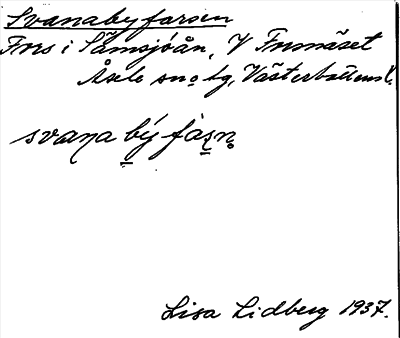 Svanabyfarsen
Fors i Sämsjöån, V Formäset
Åsele sn o tg, Västerbottens l.
svana bý fàsn̥
Lisa Lidberg 1937.